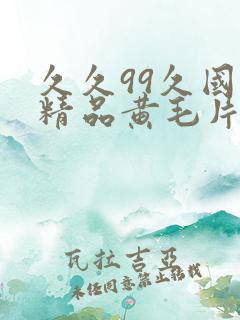 久久99久國
精品黄毛片
瓦拉吉亞
未经同意禁止转载